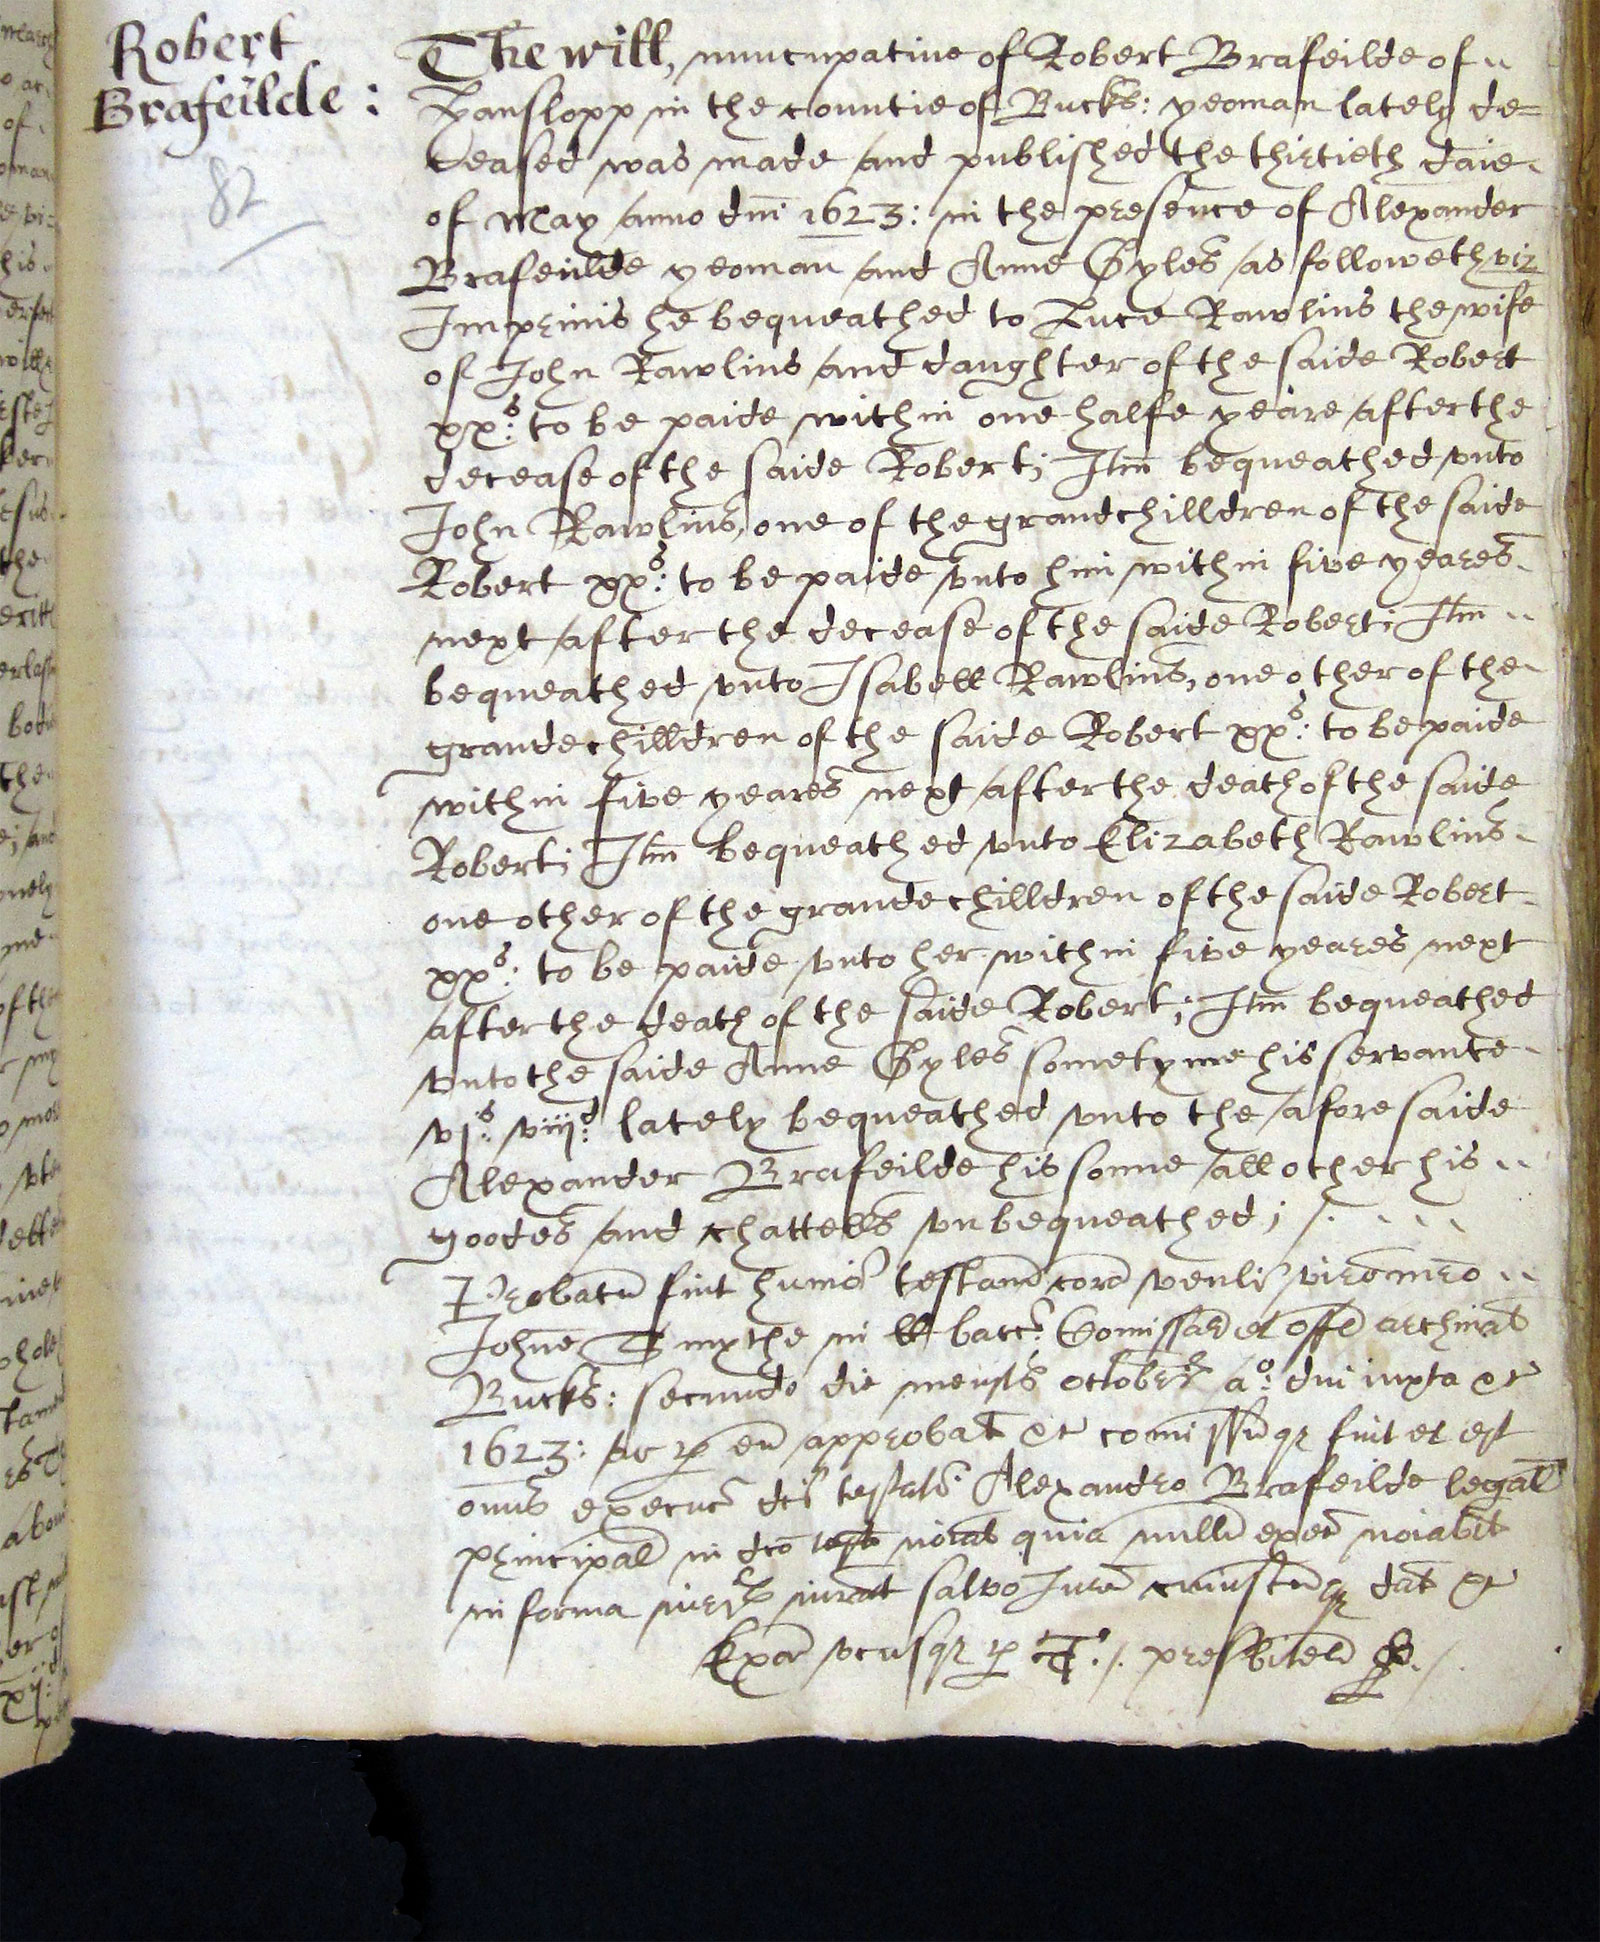 Robert
Brafeilde :
82
The will, nuncupative of Robert Brafeilde of
Hanslopp in the countie of Bucks: yeoman lately de=
ceased was made and published the thirtieth daie
of May anno dni 1623: in the presence of Alexander
Brafeilde yeoman and Anne Gyles as followeth viz
Imprimis he bequeathed to Luce Rawlins the wife
of John Rawlins and daughter of the saide Robert
xxs: to be paide within one halfe yeare after the
decease of the saide Robert; Itm bequeathed vnto
John Rawlins, one of the grandchilldren of the saide
Robert xxs: to be paide vnto him within five yeares
next after the decease of the saide Robert; Itm
bequeathed vnto Isabell Rawlins, one other of the
grandechilldren of the saide Robert xxs: to be paide
within five yeares next after the death of the saide
Robert; Itm bequeathed vnto Elizabeth Rawlins
one other of the grandechilldren of the saide Robert
xxs: to be paide vnto her within five yeares next
after the death of the saide Robert; Itm bequeathed
vnto the saide Anne Gyles sometyme his servante
vjs: viijd: lately bequeathed vnto the afore saide
Alexander Brafeilde his sonne all other his
goodes and chattells vnbequeathed;
Probatu fuit humoi testam cora venli viro mro
Johne Smythe in ll bacc: Comissar et offli archinat
Bucks: secundo die mensis Octobr ao: dni iuxta &c
1623: ac p eu approbat &c comissuqz fuit et est
onus execuc dci testator Alexandro Brafeilde legat
principal in dco noiat quia nullu exec noiabit
in forma iuris iurat salvo Jure cuiuscuqz dat &c